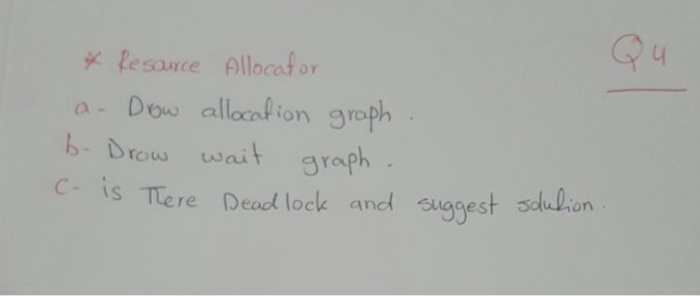 Q4
* Resource Allocator
a- Drow allocation graph.
b- Drow wait graph.
c- is There Deadlock and suggest solution.